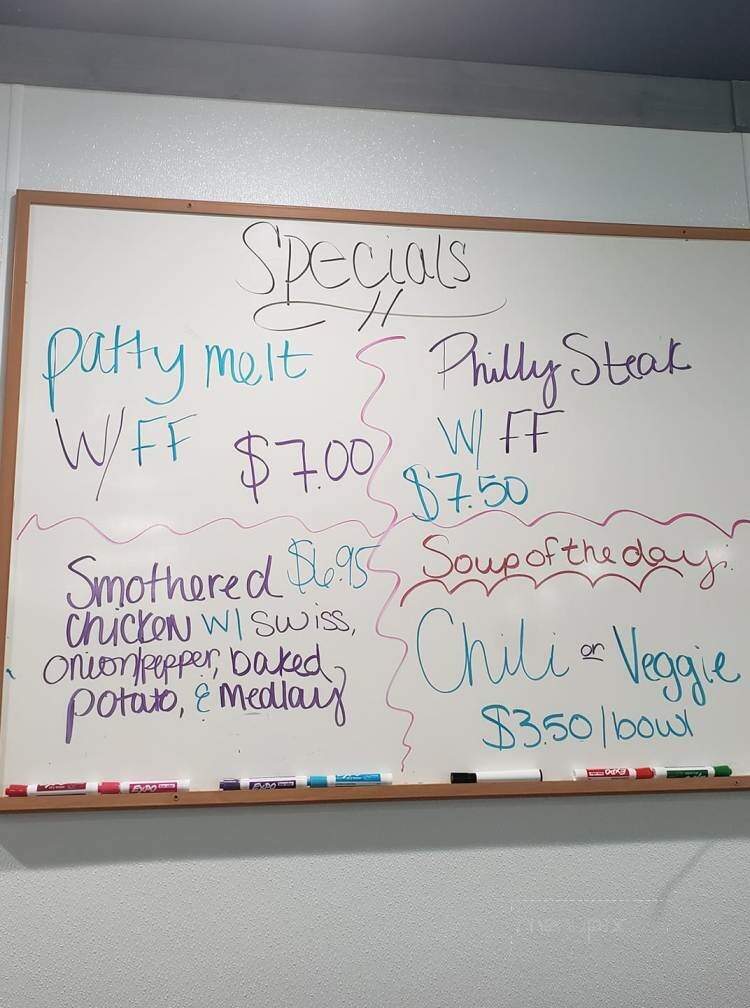 Specials
patty melt
W/ FF $7.00
Philly Steak
W/ FF
$7.50
Smothered $6.95
chicken w/ swiss,
onion/pepper, baked
potato, & Medlay
Soup of the day:
Chili or Veggie
$3.50/bowl
EXPO
EXPO
EXPO
menupix